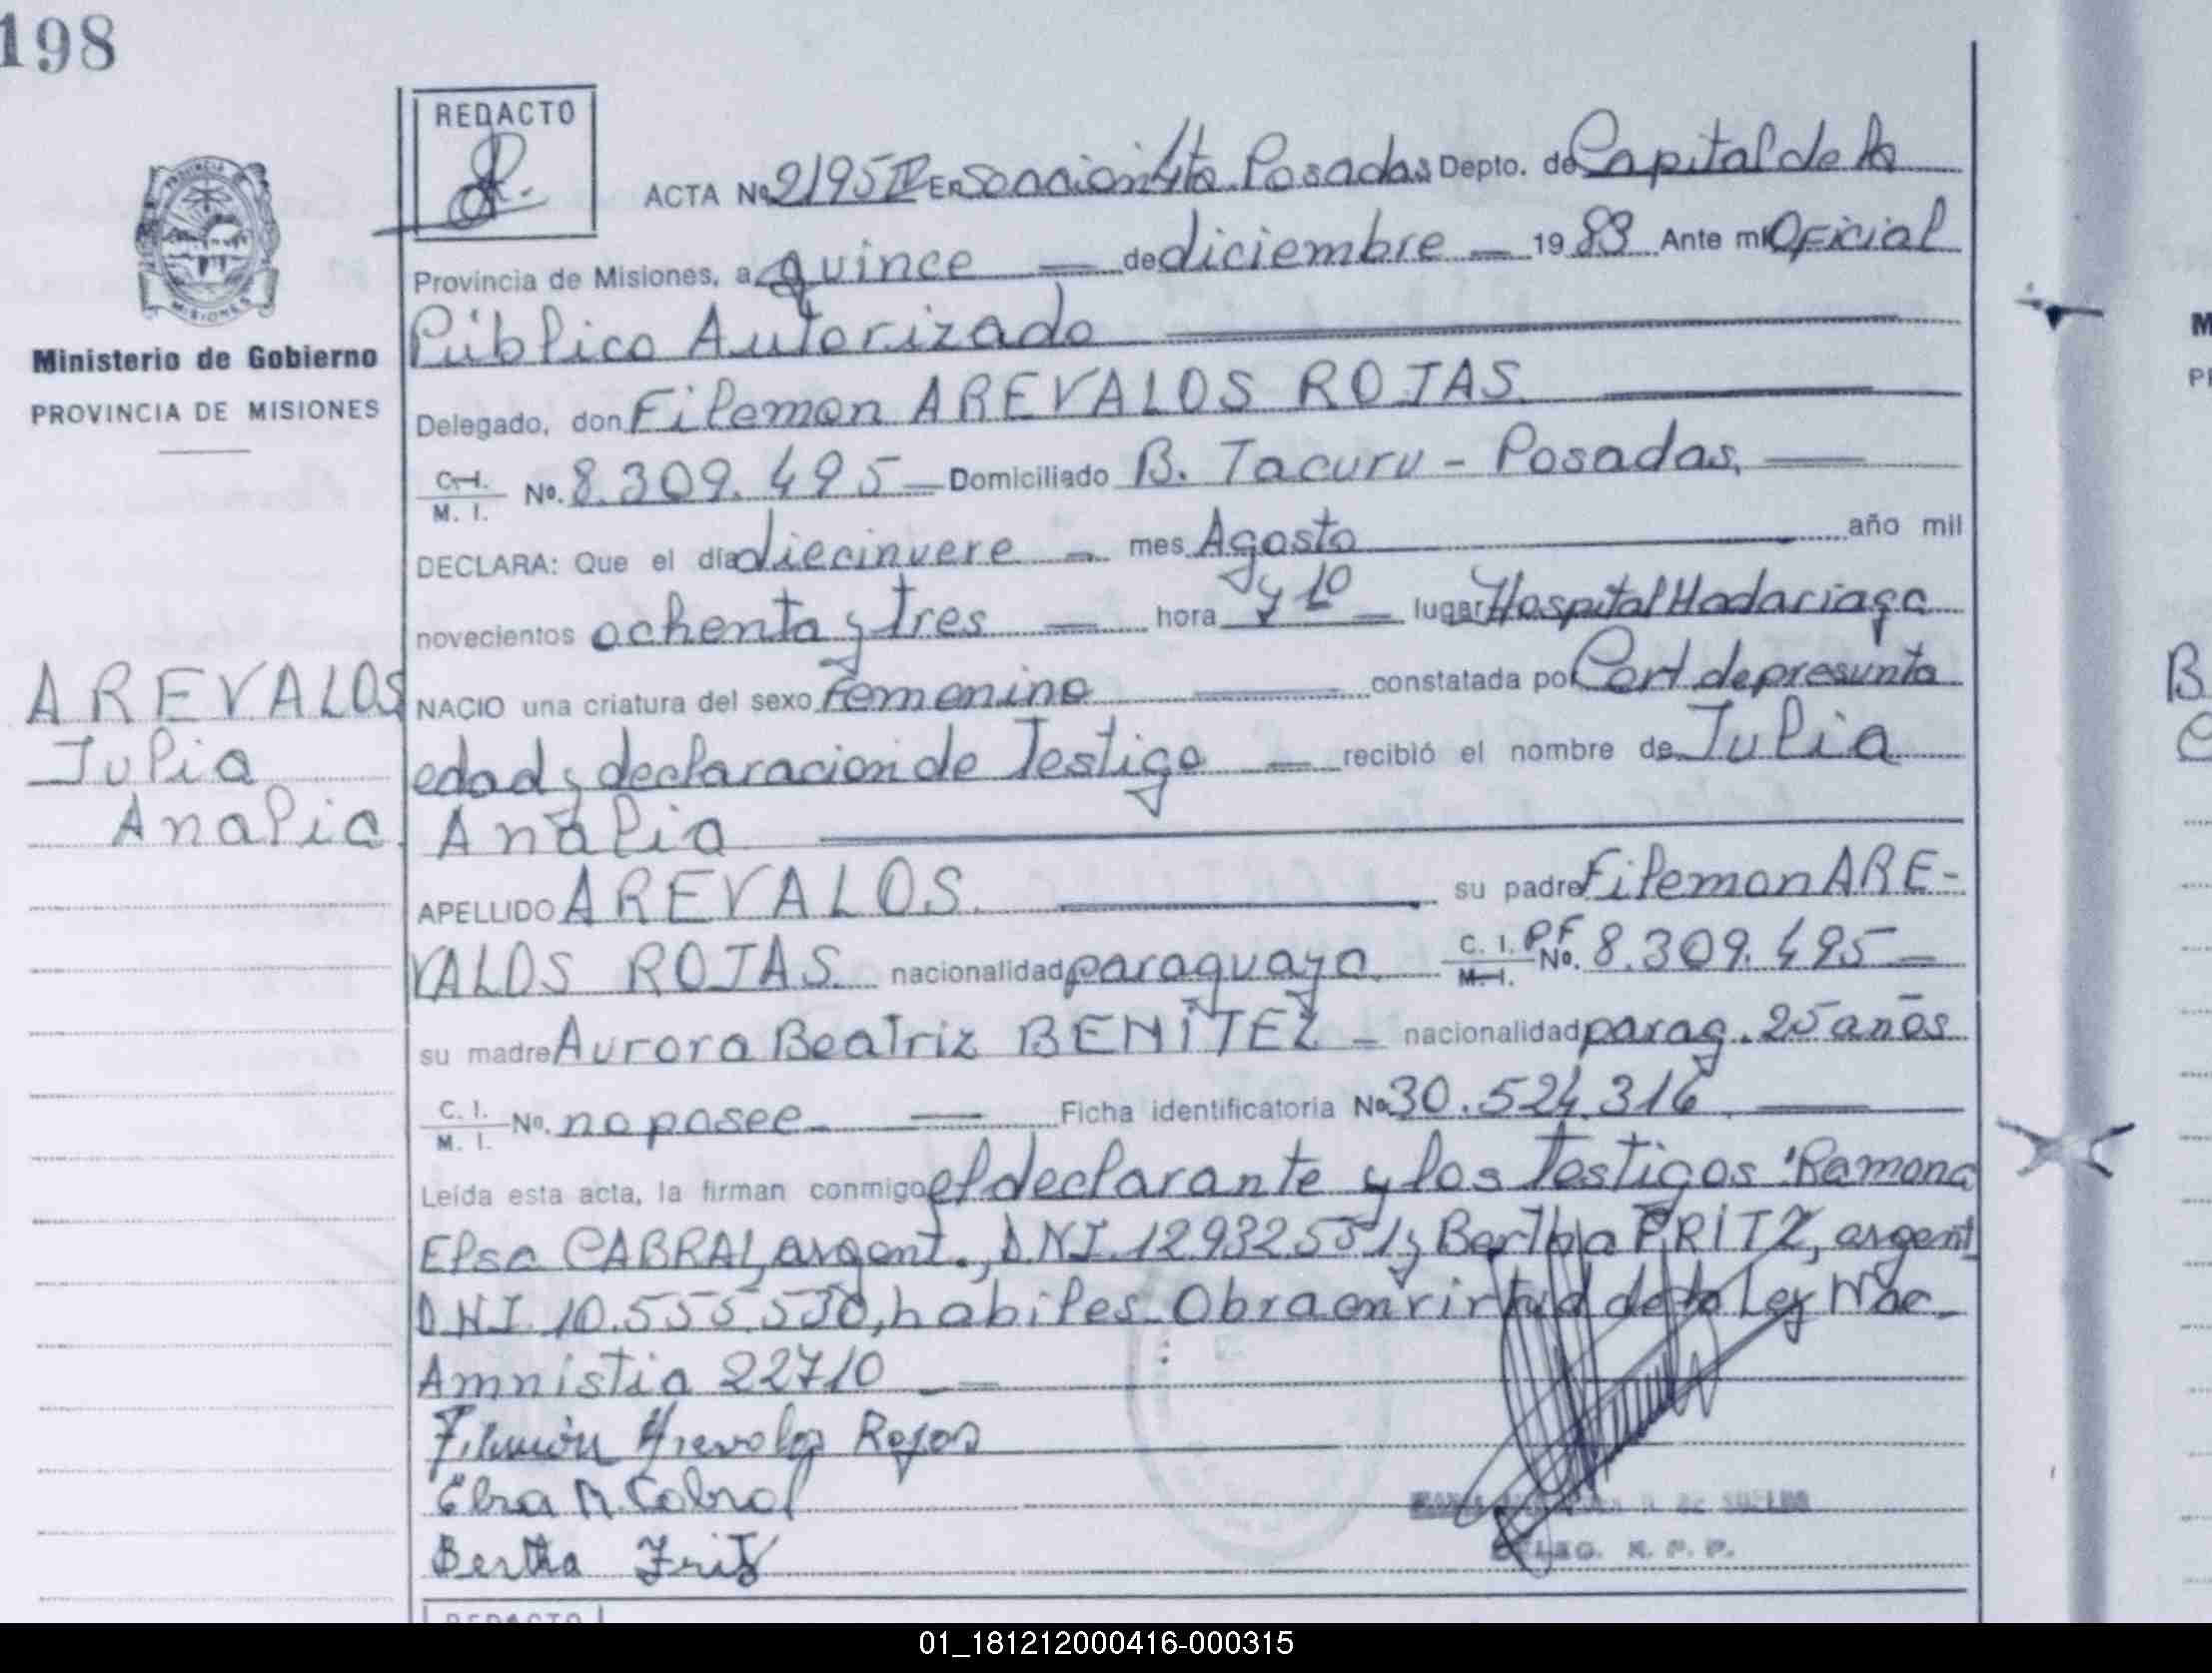 198
REDACTO
ACTA No. 2195 IV En Sección 4ta Posadas Depto. de Capital de la
Provincia de Misiones, a quince — de diciembre — 1983 Ante mi Oficial
Público Autorizado
Ministerio de Gobierno
PROVINCIA DE MISIONES
Delegado, don Filemon AREVALOS ROJAS.
C. I. M. I. No. 8.309.495 — Domiciliado B. Tacuru - Posadas, —
DECLARA: Que el día diecinueve — mes Agosto año mil
novecientos ochenta y tres — hora y 10 — lugar Hospital Madariaga
NACIO una criatura del sexo femenino — constatada por Cert de presunta
edad y declaracion de Testigo — recibió el nombre de Julia
Analia
AREVALOS
Julia
Analia.
APELLIDO AREVALOS. — su padre Filemon ARE-
VALOS ROJAS. nacionalidad paraguaya. C. I. M. I. PF No. 8.309.495 —
su madre Aurora Beatriz BENÍTEZ — nacionalidad parag. 25 años
C. I. M. I. No. no posee — Ficha identificatoria No. 30.524.316 —
Leída esta acta, la firman conmigo el declarante y los Testigos: Ramona
Elsa CABRAL, argent., D.N.I. 12932551 y Bertha FRITZ, argent
D.N.I. 10.555.530, habiles. Obra en virtud de la Ley Nac.
Amnistia 22710 —
Filemón Arevalos Rojas
Elsa R. Cabral
Bertha Fritz
DE SUELDO
R. P. P.
REDACTO
01_181212000416-000315